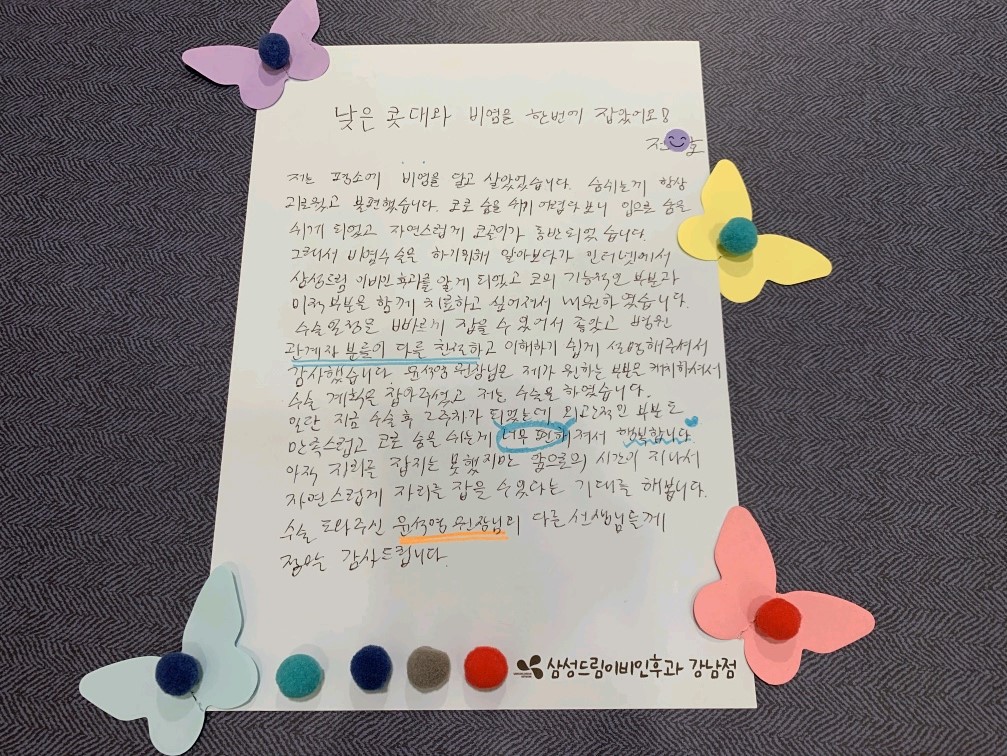 낮은 콧대와 비염을 한번에 잡았어요!
전 호
저는 평소에 비염을 달고 살았었습니다. 숨쉬는게 항상
괴로웠고 불편했습니다. 코로 숨을 쉬기 어렵다보니 입으로 숨을
쉬게 되었고 자연스럽게 코골이가 동반되었습니다.
그래서 비염수술을 하기위해 알아보다가 인터넷에서
삼성드림 이비인후과를 알게 되었고 코의 기능적인 부분과
미적부분을 함께 치료하고 싶어져서 내원하였습니다.
수술일정을 빠르게 잡을 수 있어서 좋았고 병원
관계자 분들이 다들 친절하고 이해하기 쉽게 설명해주셔서
감사했습니다. 윤석영 원장님은 제가 원하는 부분을 캐치하셔서
수술 계획을 잡아주셨고 저는 수술을 하였습니다.
일단 지금 수술후 2주차가 되었는데 외관적인 부분도
만족스럽고 코로 숨을 쉬는게 너무 편해져서 행복합니다
아직 자리를 잡지는 못했지만 앞으로의 시간이 지나서
자연스럽게 자리를 잡을 수 있다는 기대를 해봅니다.
수술 도와주신 윤석영 원장님외 다른 선생님들께
정말 감사드립니다.
삼성드림이비인후과 강남점